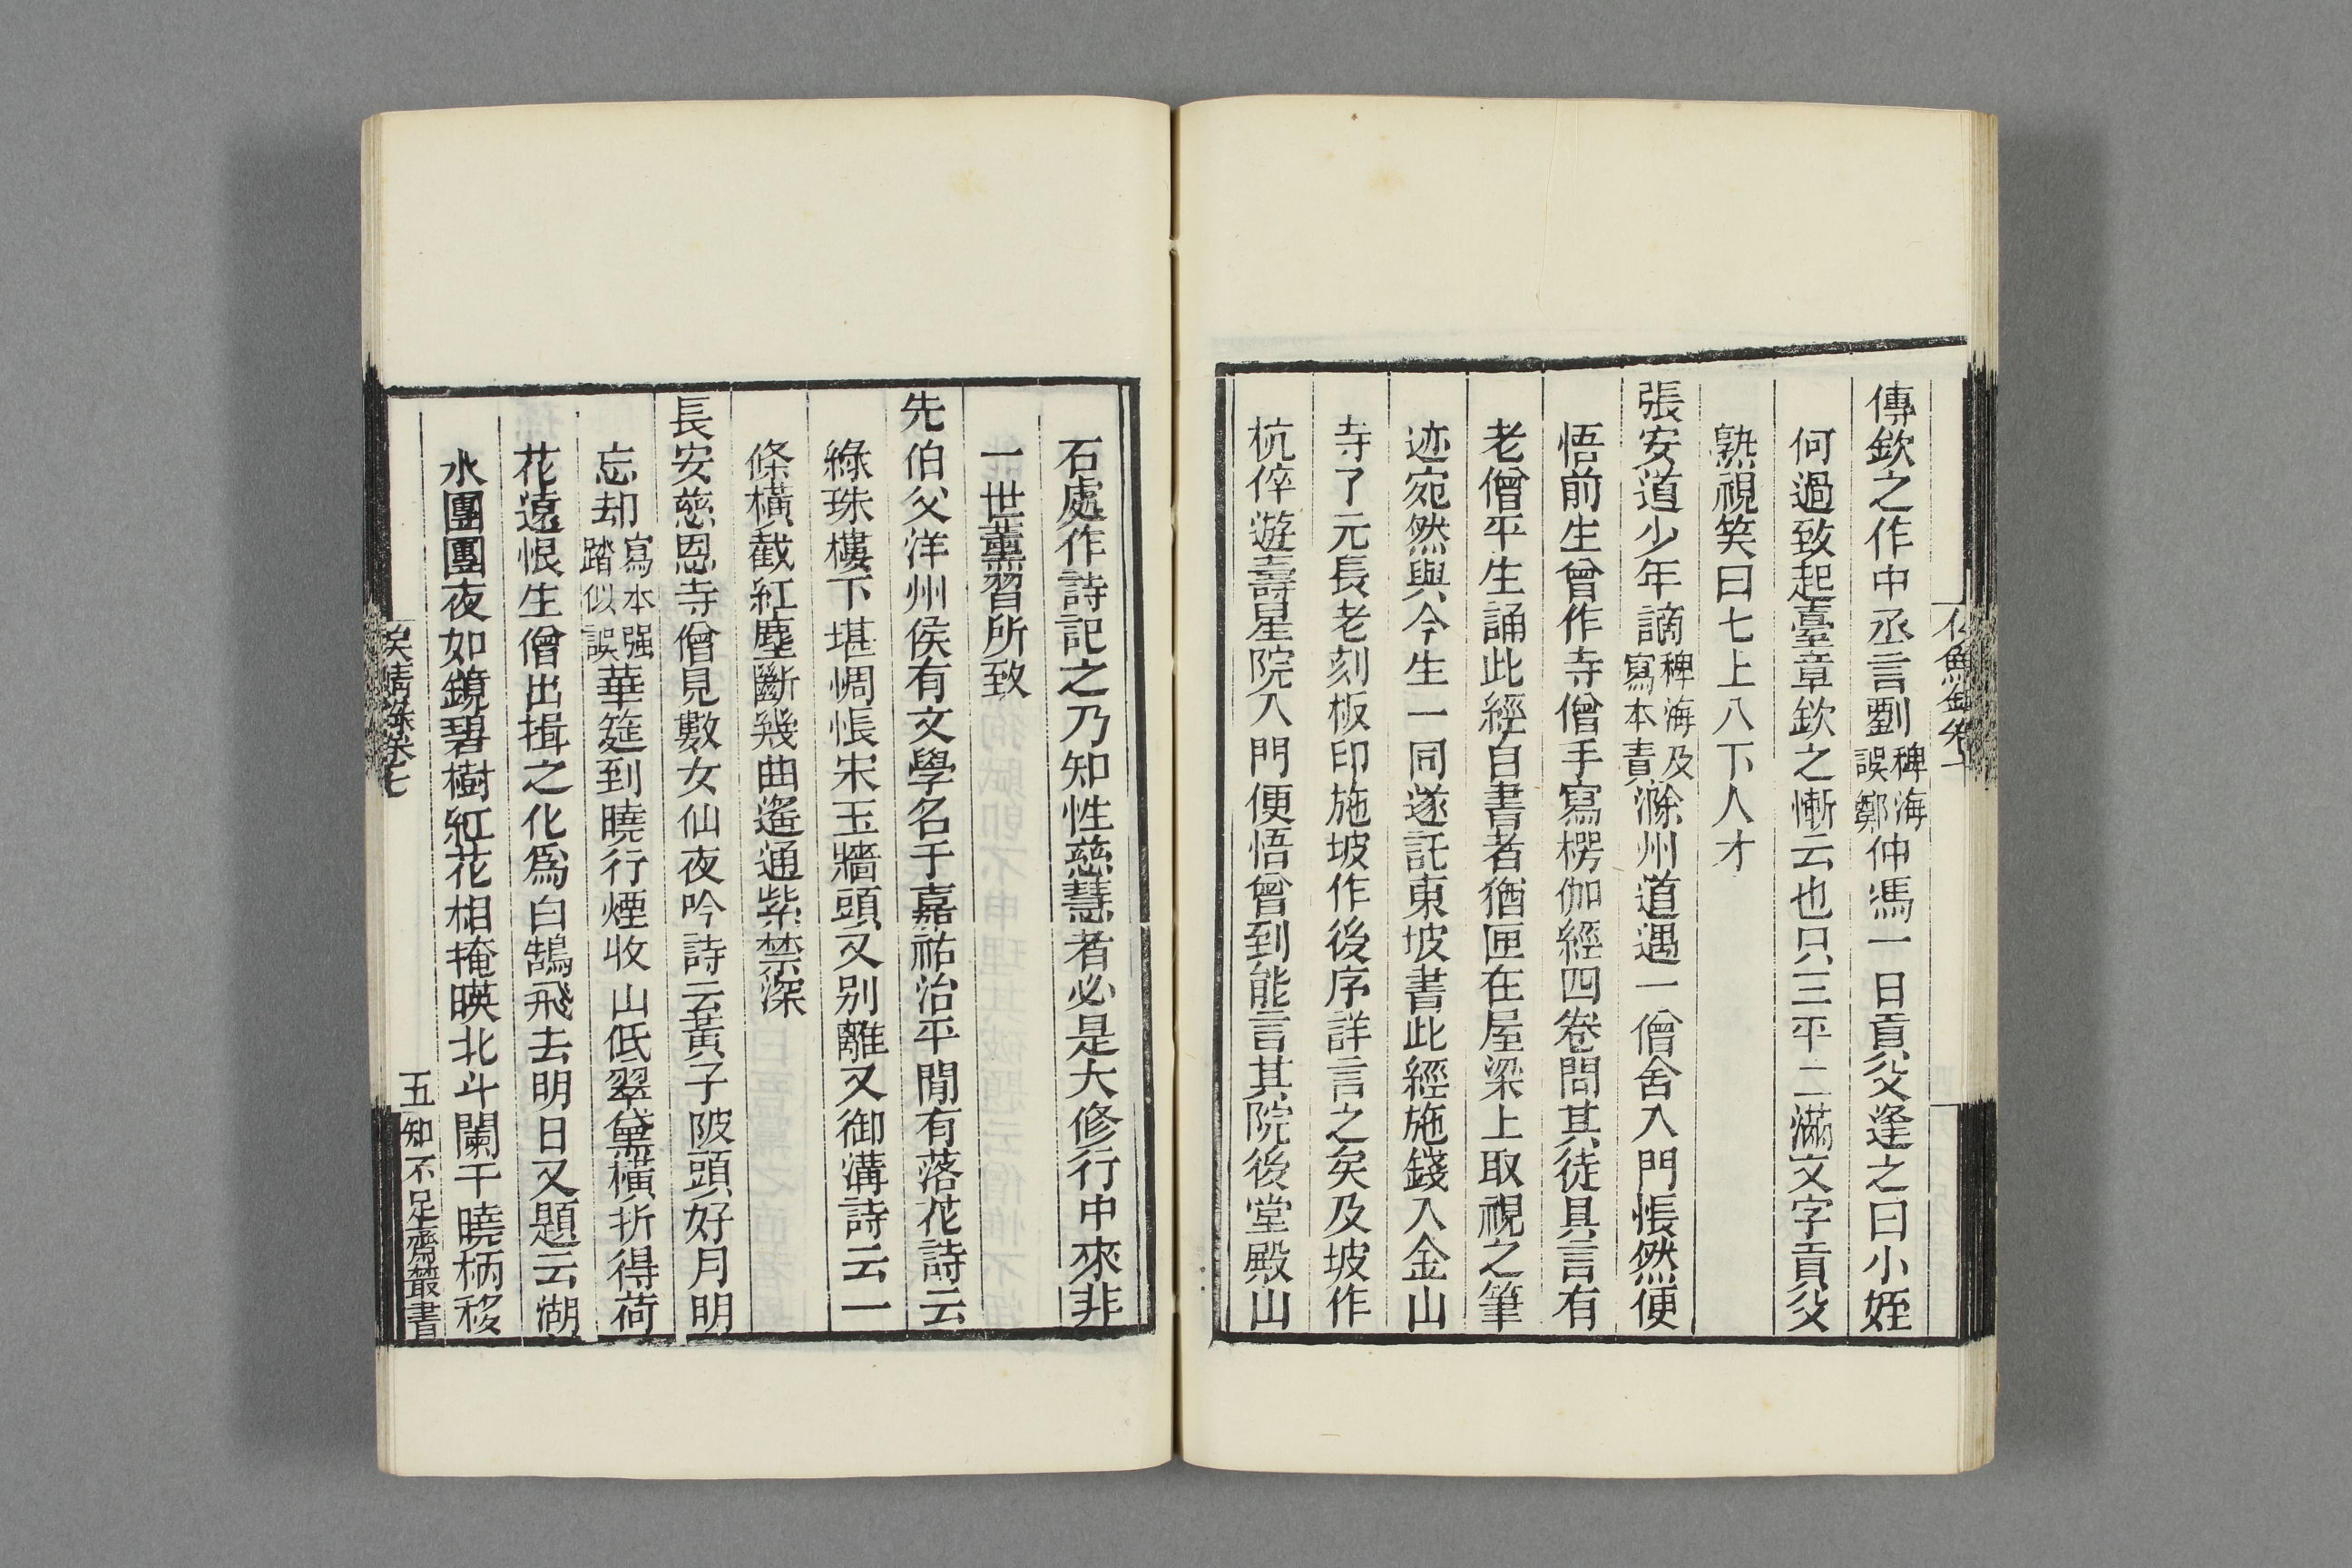 傳欽之作中丞言劉稗海誤鄭仲馮一日貢父逢之曰小姪
何過致起臺章欽之慚云也只三平二滿文字貢父
熟視笑曰七上八下人才
張安道少年謫稗海及寫本責滁州道遇一僧舍入門悵然便
悟前生曾作寺僧手寫楞伽經四卷問其徒具言有
老僧平生誦此經自書者猶匣在屋梁上取視之筆
迹宛然與今生一同遂託東坡書此經施錢入金山
寺了元長老刻板印施坡作後序詳言之矣及坡作
杭倅遊壽星院入門便悟曾到能言其院後堂殿山
石處作詩記之乃知性慈慧者必是大修行中來非
一世薰習所致
先伯父洋州侯有文學名于嘉祐治平閒有落花詩云
綠珠樓下堪惆悵宋玉牆頭又别離又御溝詩云一
條橫截紅塵斷幾曲遙通紫禁深
長安慈恩寺僧見數女仙夜吟詩云黃子陂頭好月明
忘却寫本强踏似誤華筵到曉行煙收山低翠黛橫折得荷
花遠恨生僧出揖之化爲白鵠飛去明日又題云湖
水團團夜如鏡碧樹紅花相掩暎北斗闌干曉柄移
侯鯖錄卷七
五知不足齋叢書